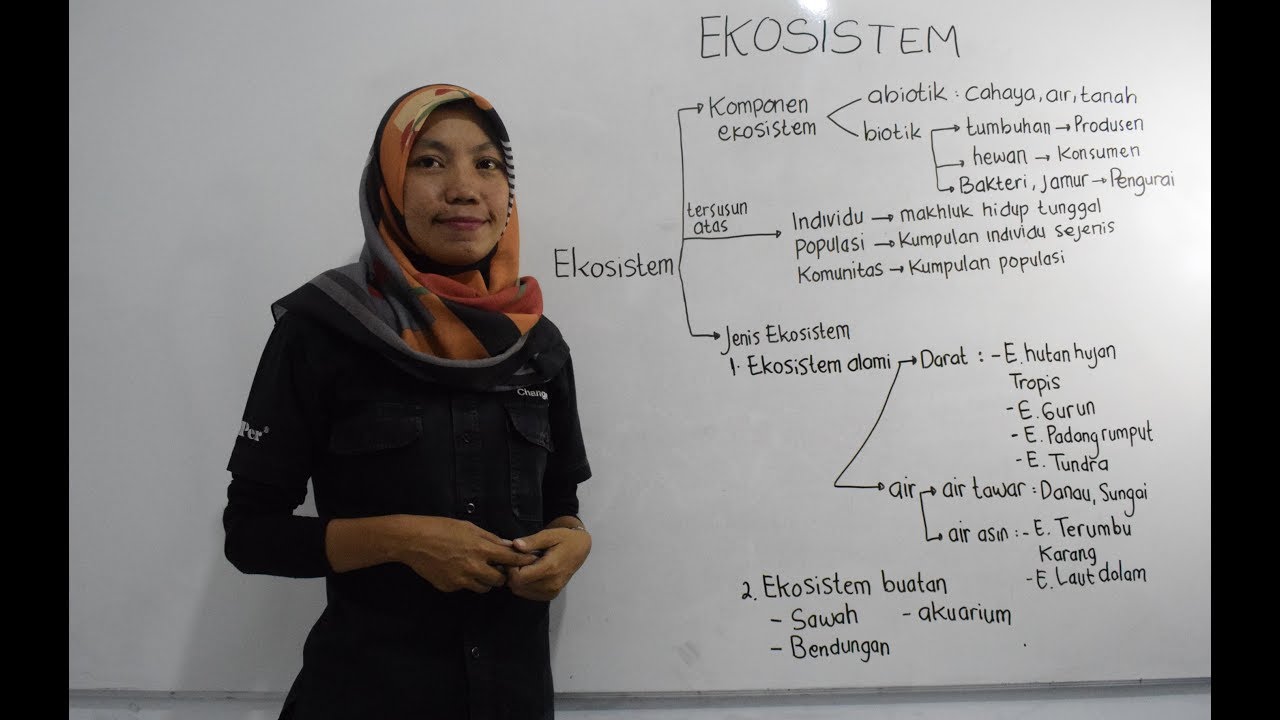 EKOSISTEM
Komponen ekosistem
abiotik : Cahaya, air, tanah
biotik
tumbuhan → Produsen
hewan → Konsumen
Bakteri, Jamur → Pengurai
Ekosistem
tersusun atas
Individu → makhluk hidup tunggal
Populasi → Kumpulan individu sejenis
Komunitas → Kumpulan populasi
Jenis Ekosistem
1. Ekosistem alami → Darat : - E. hutan hujan
Tropis
- E. Gurun
- E. Padang rumput
- E. Tundra
→ air → air tawar : Danau, Sungai
→ air asin : - E. Terumbu
Karang
- E. Laut dalam
2. Ekosistem buatan
- Sawah - akuarium
- Bendungan
Chang
Per®